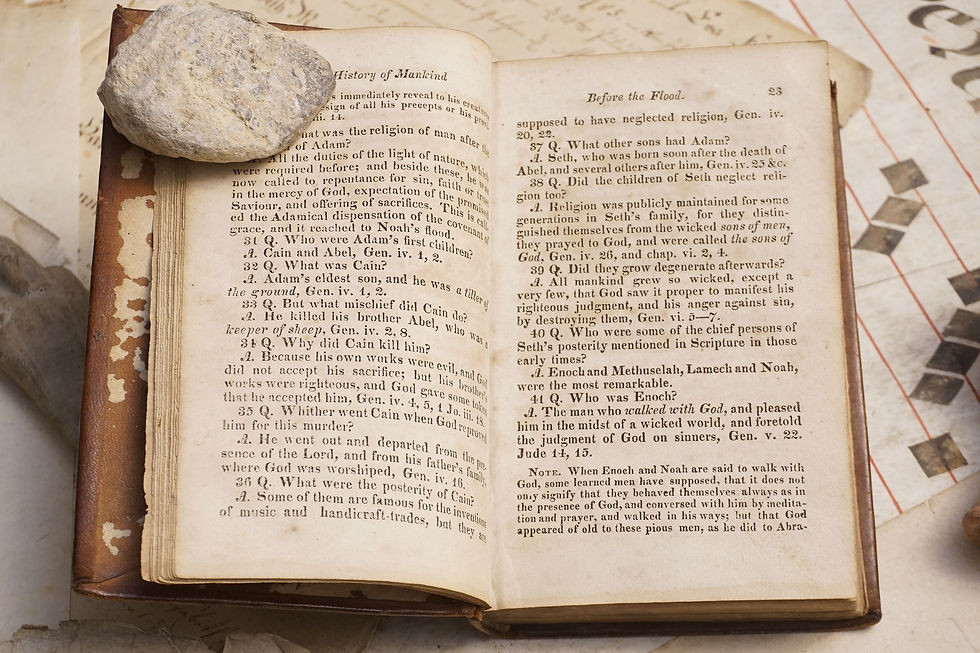 History of Mankind
s immediately reveal to his creatures
sign of all his precepts or his
iii. 14.
hat was the religion of man after the
of Adam?
All the duties of the light of nature, which
were required before; and beside these, he was
now called to repentance for sin, faith or trust
in the mercy of God, expectation of the promised
Saviour, and offering of sacrifices. This is call-
ed the Adamical dispensation of the covenant of
grace, and it reached to Noah's flood.
31 Q. Who were Adam's first children?
A. Cain and Abel, Gen. iv. 1, 2.
32 Q. What was Cain?
A. Adam's eldest son, and he was a tiller of
the ground, Gen. iv. 1, 2.
33 Q. But what mischief did Cain do?
A. He killed his brother Abel, who was a
keeper of sheep, Gen. iv. 2, 8.
34 Q. Why did Cain kill him?
A. Because his own works were evil, and God
did not accept his sacrifice; but his brother's
works were righteous, and God gave some token
that he accepted him, Gen. iv. 4, 5, 1 Jo. iii. 18.
35 Q. Whither went Cain when God reproved
him for this murder?
A. He went out and departed from the pre-
sence of the Lord, and from his father's family,
where God was worshiped, Gen. iv. 16.
36 Q. What were the posterity of Cain?
A. Some of them are famous for the inventions
of music and handicraft-trades, but they are
Before the Flood. 23
supposed to have neglected religion, Gen. iv.
20, 22.
37 Q. What other sons had Adam?
A. Seth, who was born soon after the death of
Abel, and several others after him, Gen. iv. 25 &c.
38 Q. Did the children of Seth neglect reli-
gion too?
A. Religion was publicly maintained for some
generations in Seth's family, for they distin-
guished themselves from the wicked sons of men,
they prayed to God, and were called the sons of
God, Gen. iv. 26, and chap. vi. 2, 4.
39 Q. Did they grow degenerate afterwards?
A. All mankind grew so wicked, except a
very few, that God saw it proper to manifest his
righteous judgment, and his anger against sin,
by destroying them, Gen. vi. 5—7.
40 Q. Who were some of the chief persons of
Seth's posterity mentioned in Scripture in those
early times?
A. Enoch and Methuselah, Lamech and Noah,
were the most remarkable.
41 Q. Who was Enoch?
A. The man who walked with God, and pleased
him in the midst of a wicked world, and foretold
the judgment of God on sinners, Gen. v. 22.
Jude 14, 15.
NOTE. When Enoch and Noah are said to walk with
God, some learned men have supposed, that it does not
only signify that they behaved themselves always as in
the presence of God, and conversed with him by medita-
tion and prayer, and walked in his ways; but that God
appeared of old to these pious men, as he did to Abra-